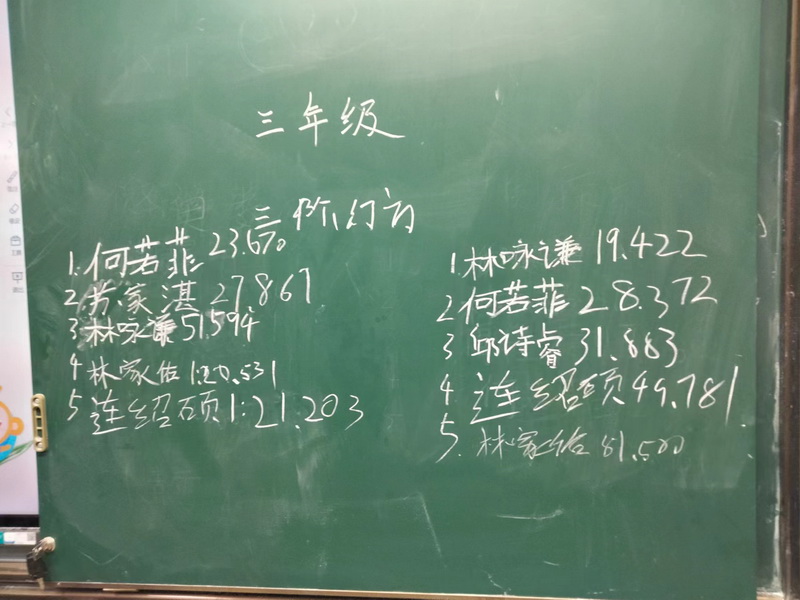 三年级
三阶幻方
1.何若菲 23.670
2 劳家湛 27.867
3 林咏谦 51.594
4 林家佑 1:20.531
5 连绍硕 1:21.203
1.林咏谦 19.422
2 何若菲 28.372
3 邱诗睿 31.883
4 连绍硕 49.781
5. 林家佑 81.500